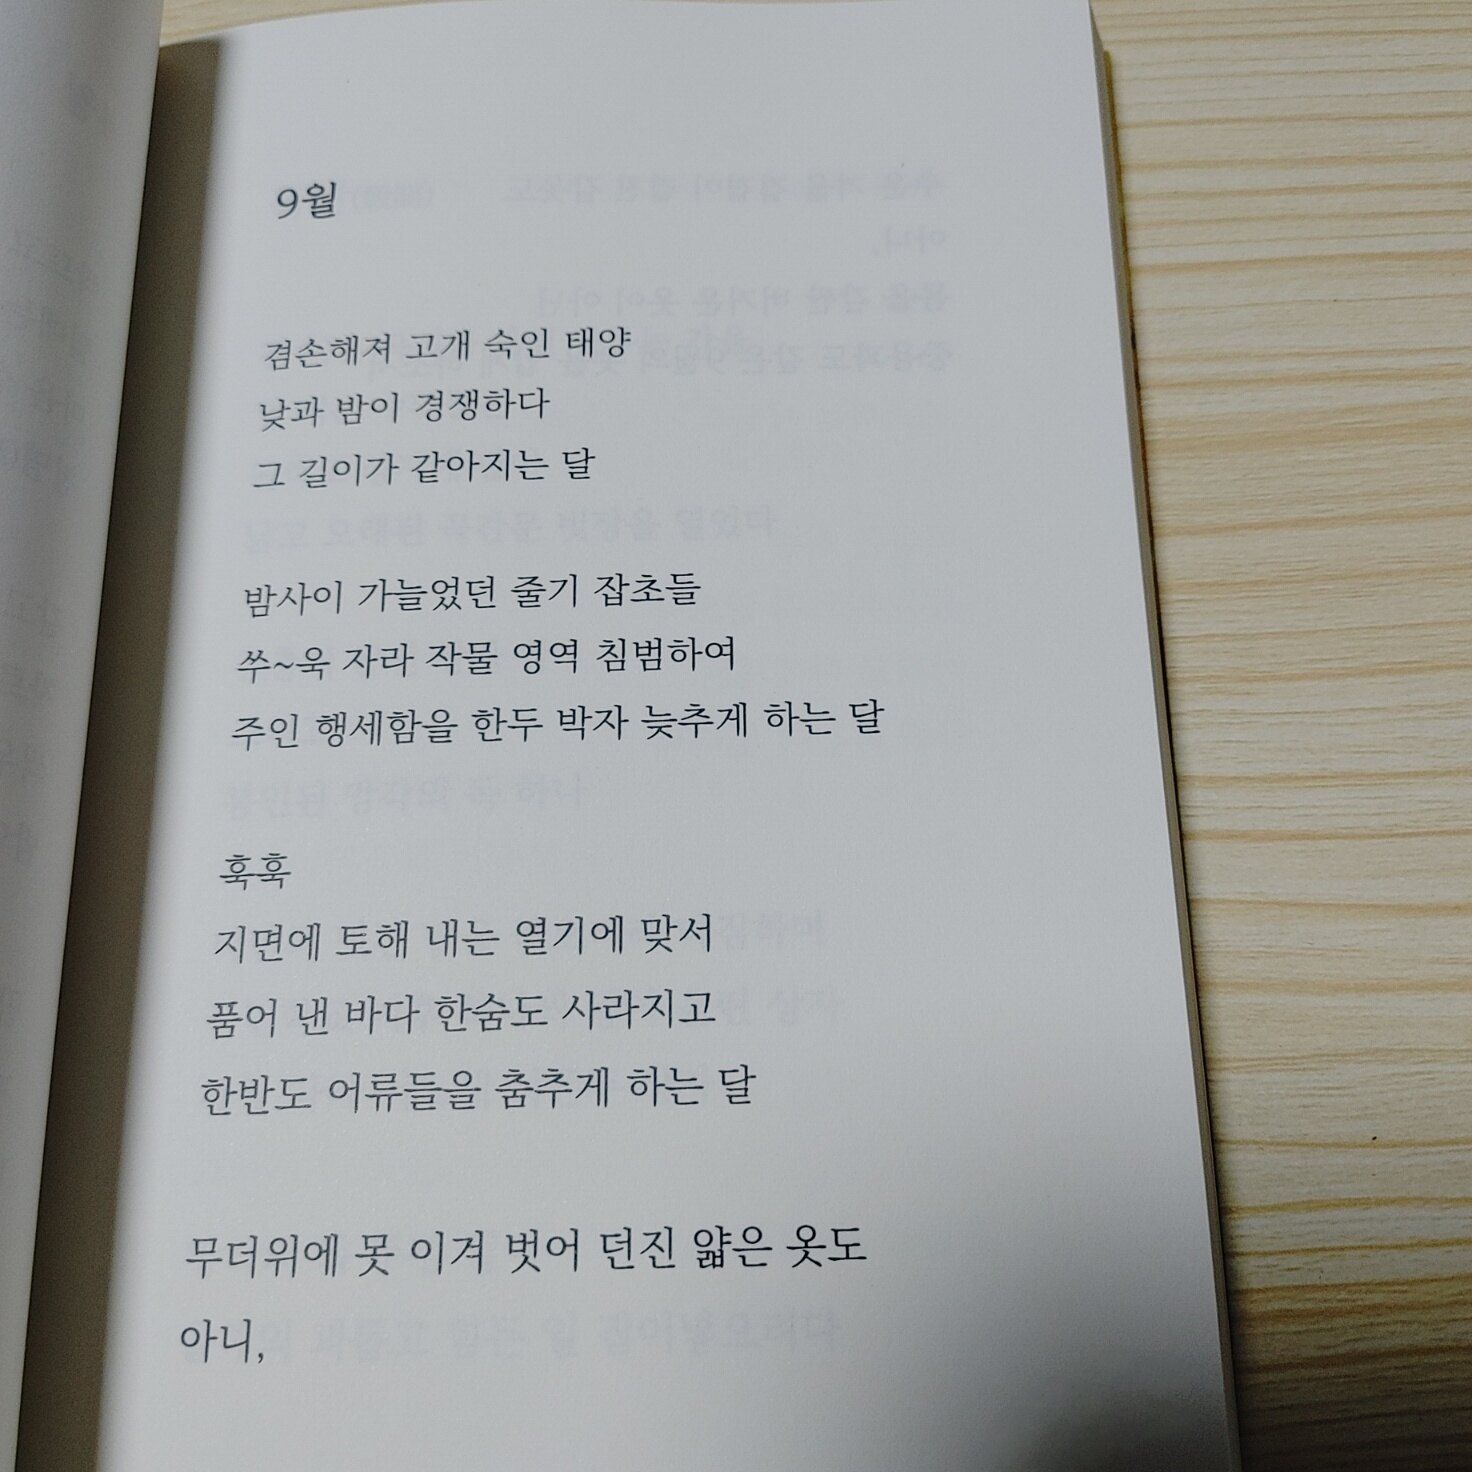 9월
겸손해져 고개 숙인 태양
낮과 밤이 경쟁하다
그 길이가 같아지는 달
밤사이 가늘었던 줄기 잡초들
쑤~욱 자라 작물 영역 침범하여
주인 행세함을 한두 박자 늦추게 하는 달
훅훅
지면에 토해 내는 열기에 맞서
품어 낸 바다 한숨도 사라지고
한반도 어류들을 춤추게 하는 달
무더위에 못 이겨 벗어 던진 얇은 옷도
아니,